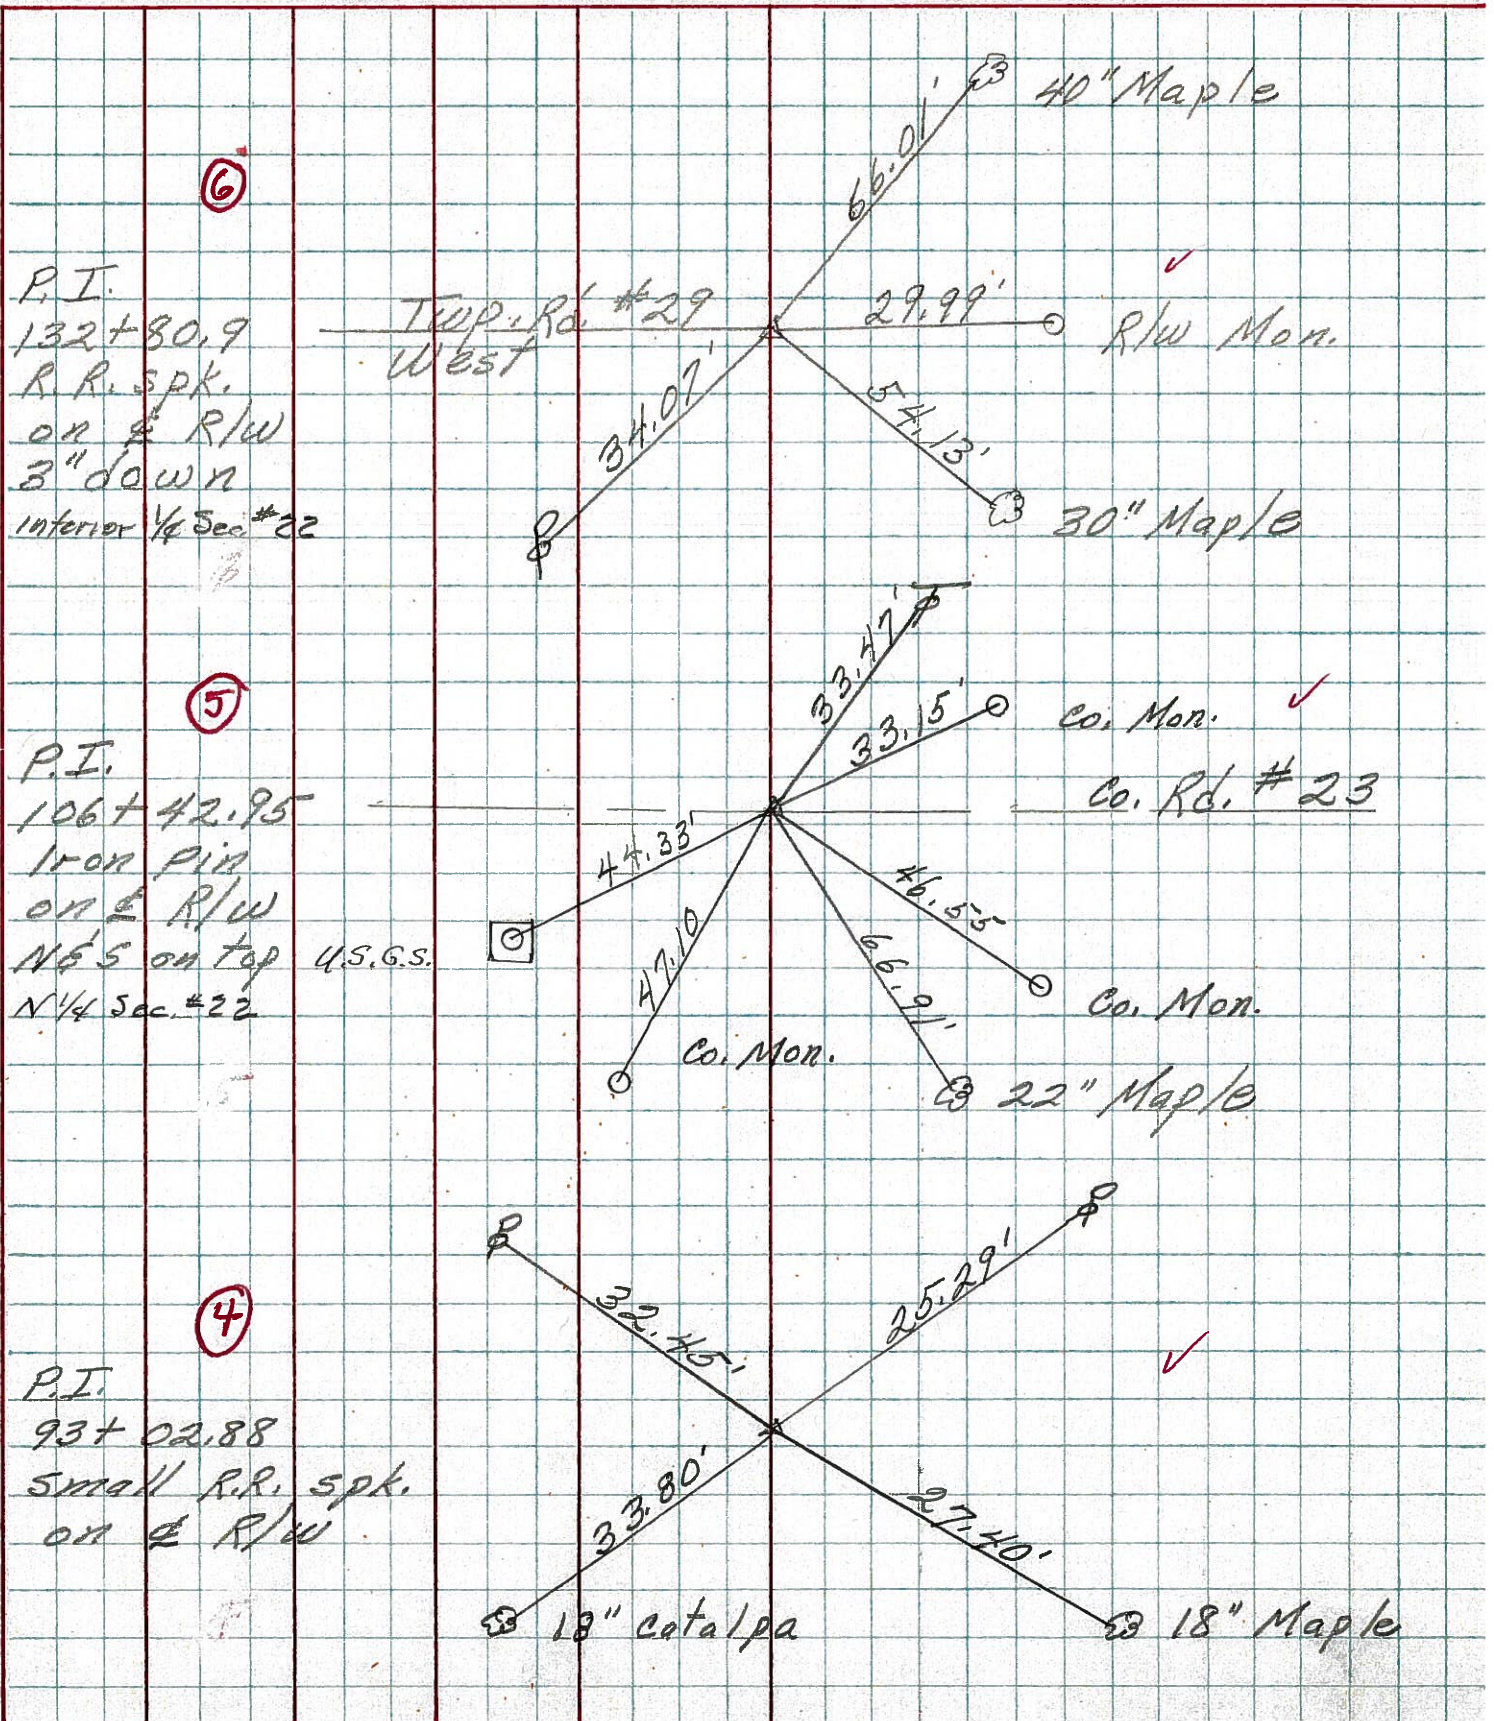 40" Maple
66.01'
6
P.I.
132+80.9
R.R. spk.
on ℄ R/W
3" down
Interior 1/4 Sec. #22
Twp. Rd. #29
West
29.99'
R/W Mon.
34.07'
54.13'
30" Maple
5
P.I.
106+42.95
Iron Pin
on ℄ R/W
N&S on top
N 1/4 Sec. #22
33.47'
33.15'
Co. Mon.
Co. Rd. #23
44.33'
U.S.G.S.
47.10
Co. Mon.
46.55
Co. Mon.
66.91'
22" Maple
4
P.I.
93+02.88
Small R.R. spk.
on ℄ R/W
32.45'
25.29'
33.80'
27.40'
18" Catalpa
18" Maple